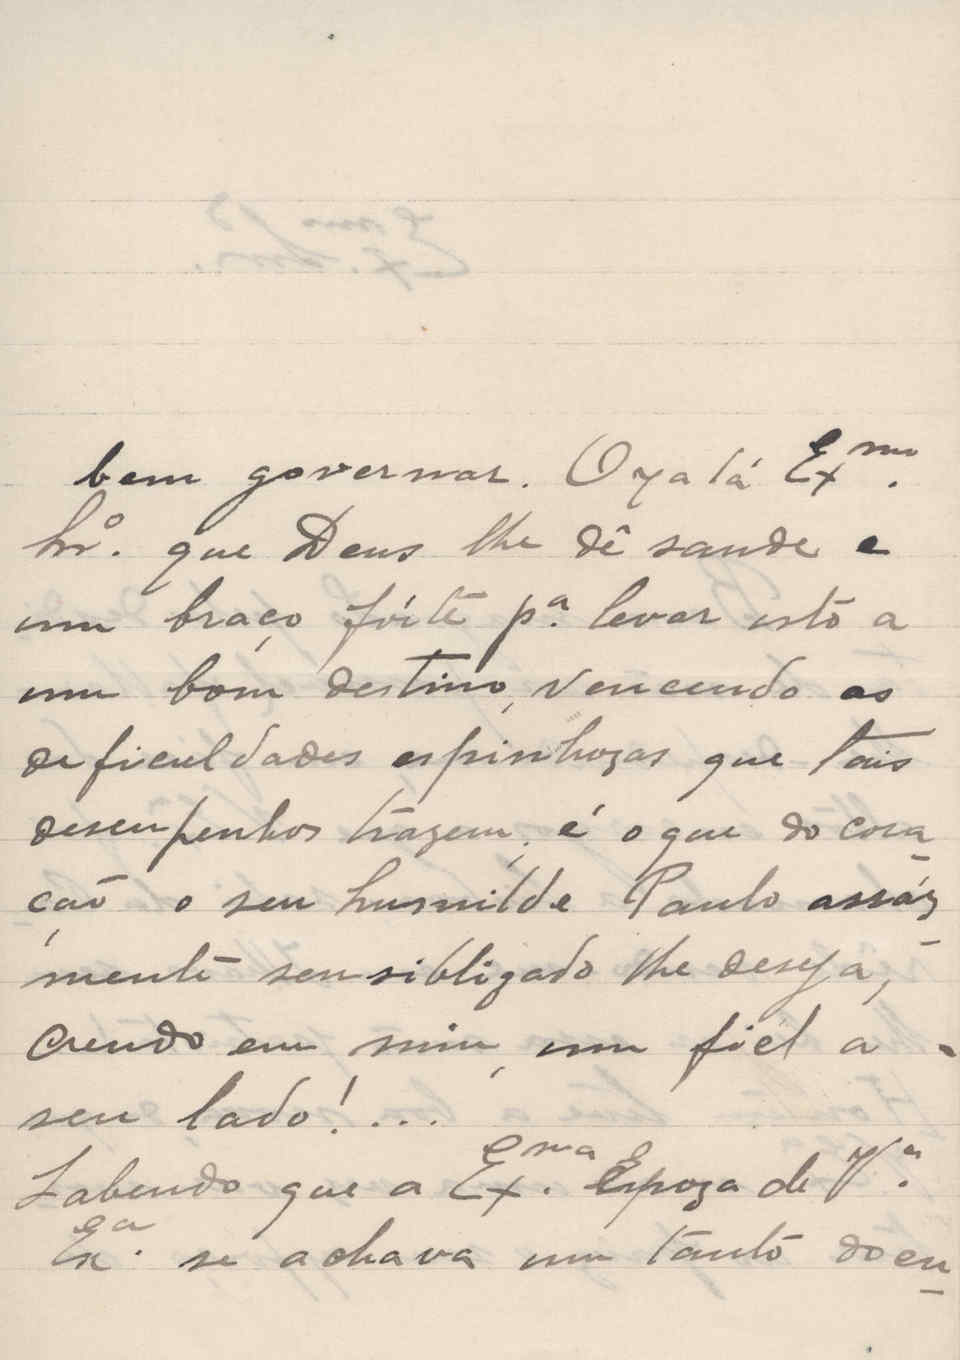 bem governar. Oyalá Exmo.
Snr. que Deus lhe dê saude e
um braço fórte pa. levar isto a
um bom destino, vencendo as
deficuldades espinhozas que tais
desenpenhos trazem, é o que do cora
ção o seu humilde Paulo assáz
mente sensibligado lhe deseya,
crendo em mim, um fiél a
seu lado!....
Sabendo que a Exma. Espoza de Va.
Exa. se achava um tanto doen